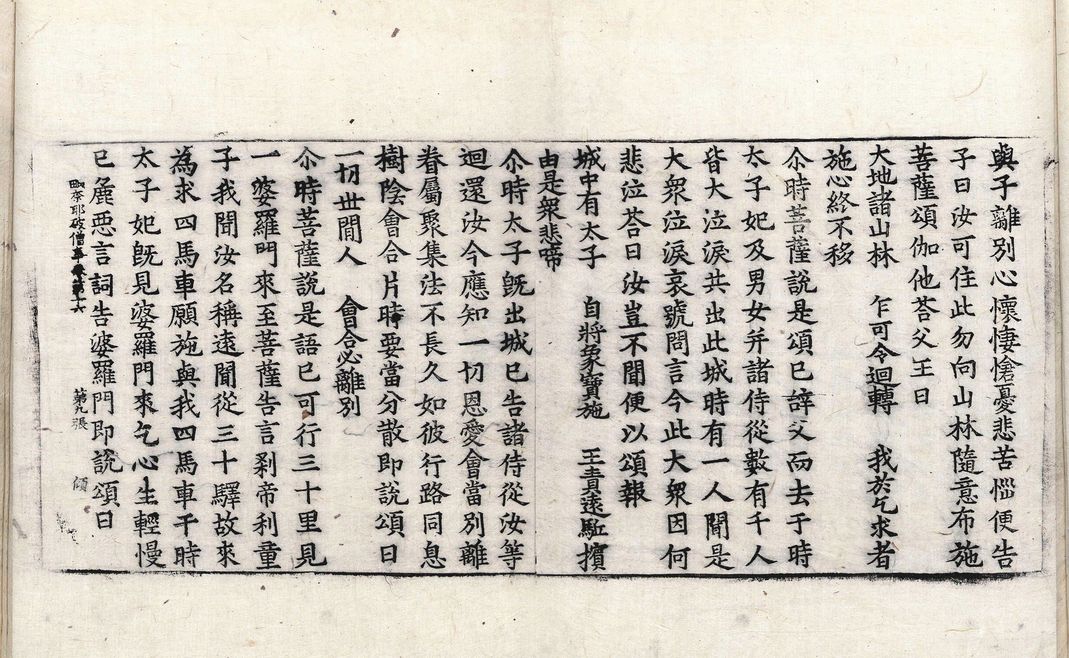 與子離別心懷悽愴憂悲苦惱便告
子曰汝可住此勿向山林隨意布施
菩薩頌伽他荅父王曰
大地諸山林　乍可令迴轉　我於乞求者
施心終不移
尒時菩薩說是頌已辝父而去于時
太子妃及男女幷諸侍從數有千人
皆大泣淚共出此城時有一人聞是
大衆泣淚哀號問言今此大衆因何
悲泣荅曰汝豈不聞便以頌報
城中有太子　自將象寶施　王責遠駈擯
由是衆悲啼
尒時太子旣出城已告諸侍從汝等
迴還汝今應知一切恩愛會當別離
眷屬聚集法不長久如彼行路同息
樹陰會合片時要當分散即說頌曰
一切世閒人　會合必離別
尒時菩薩說是語已可行三十里見
一婆羅門來至菩薩告言剎帝利童
子我聞汝名稱遠聞從三十驛故來
為求四馬車願施與我四馬車于時
太子妃旣見婆羅門來乞心生輕慢
已麁惡言詞告婆羅門即說頌曰
毗奈耶破僧事卷第十六　第九張　傾